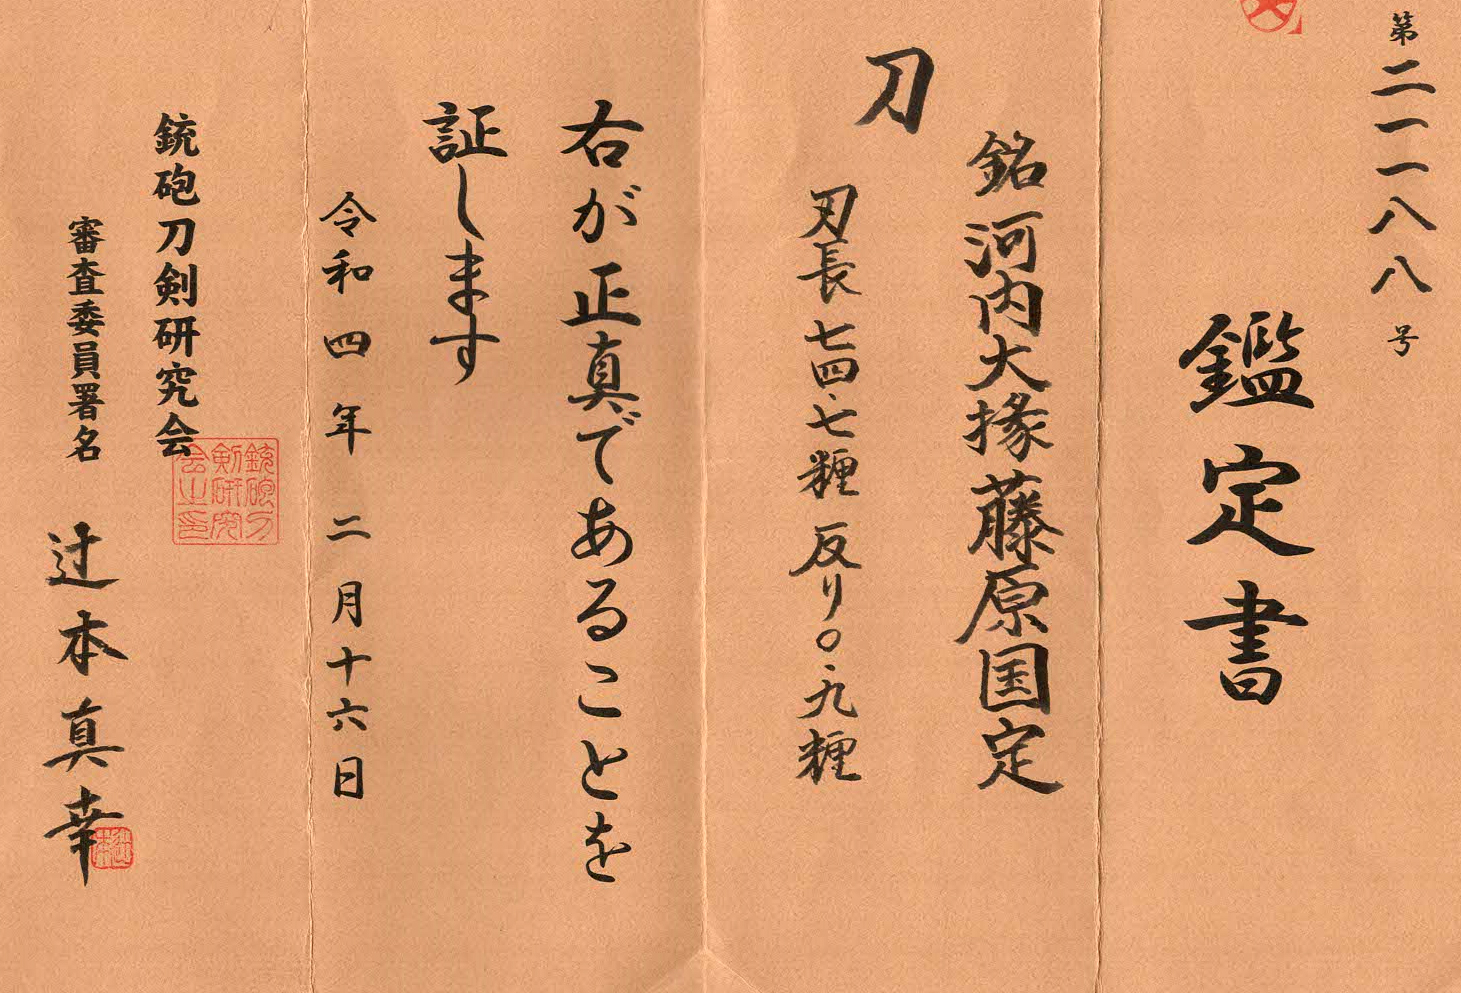 第二一一八八号
鑑定書
銘 河内大掾藤原国定
刀
刃長 七四・七糎 反り〇・九糎
右が正真であることを
証します
令和四年二月十六日
銃砲刀剣研究会
銃砲刀
剣研究
会之印
審査委員署名 辻本真幸
辻本